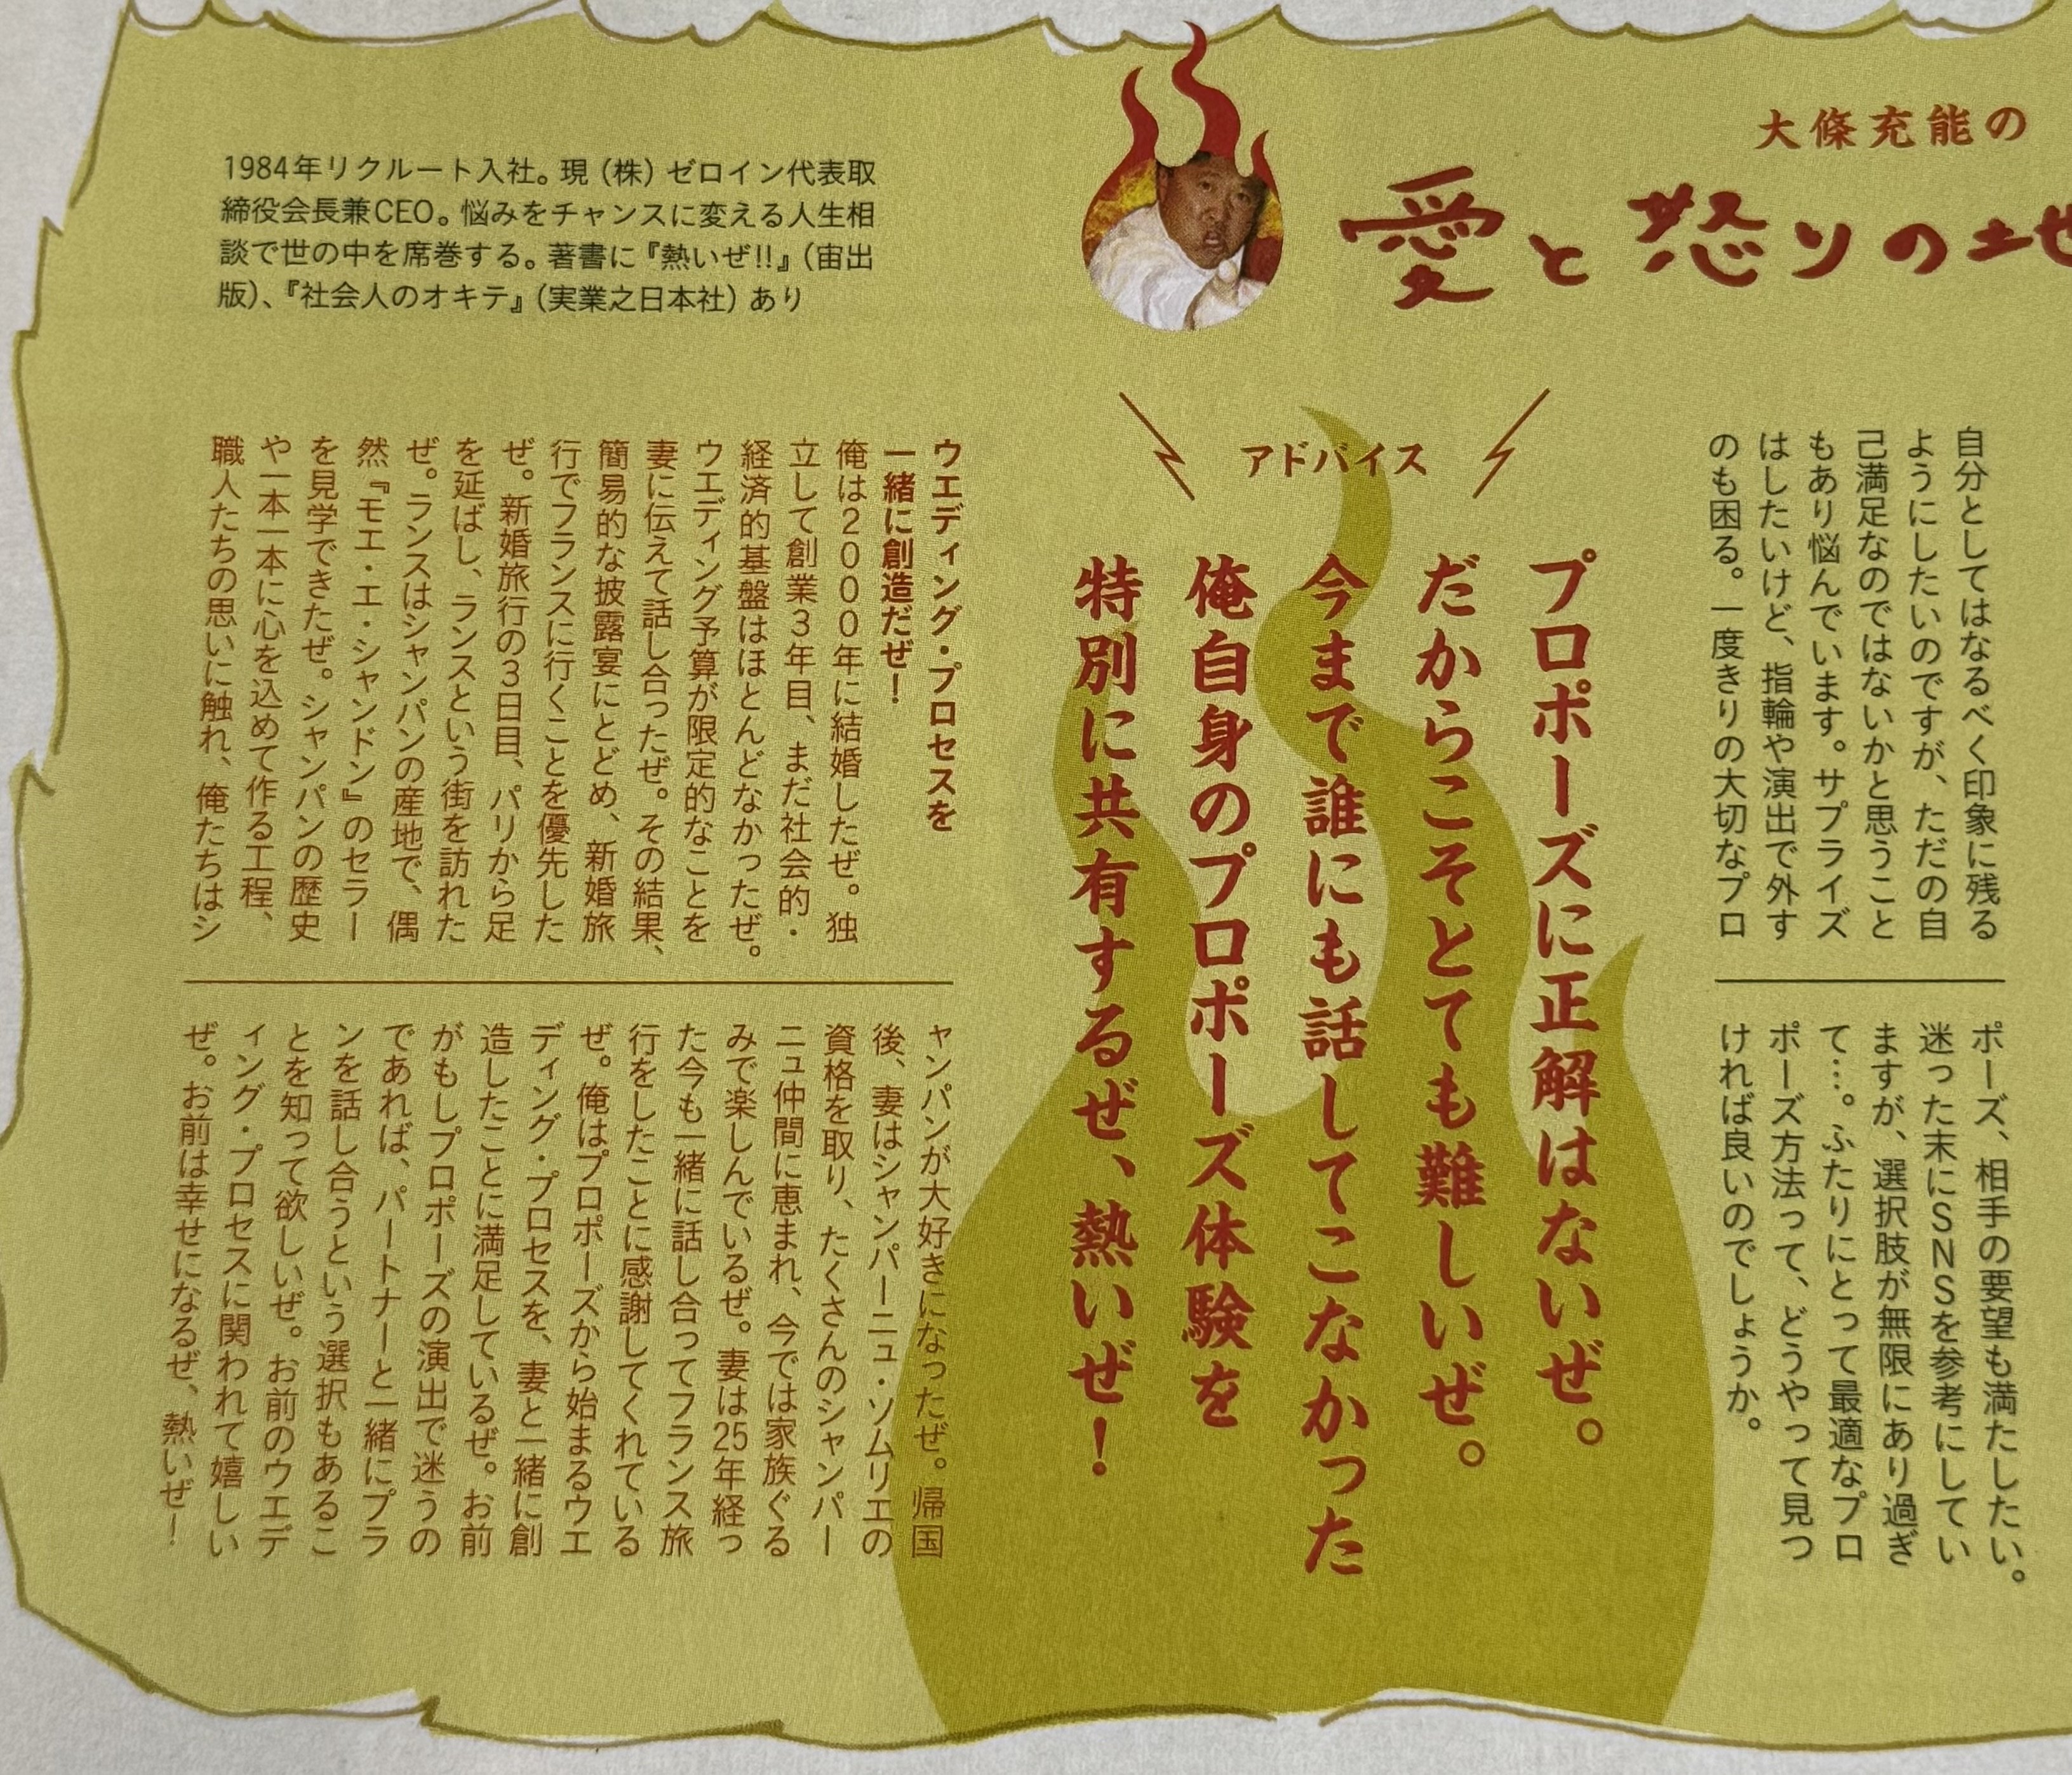 大條充能の
愛と怒りの地
1984年リクルート入社。現（株）ゼロイン代表取
締役会長兼CEO。悩みをチャンスに変える人生相
談で世の中を席巻する。著書に『熱いぜ!!』（宙出
版）、『社会人のオキテ』（実業之日本社）あり
自分としてはなるべく印象に残る
ようにしたいのですが、ただの自
己満足なのではないかと思うこと
もあり悩んでいます。サプライズ
はしたいけど、指輪や演出で外す
のも困る。一度きりの大切なプロ
ポーズ、相手の要望も満たしたい。
迷った末にSNSを参考にしてい
ますが、選択肢が無限にあり過ぎ
て…。ふたりにとって最適なプロ
ポーズ方法って、どうやって見つ
ければ良いのでしょうか。
アドバイス
プロポーズに正解はないぜ。
だからこそとても難しいぜ。
今まで誰にも話してこなかった
俺自身のプロポーズ体験を
特別に共有するぜ、熱いぜ！
ウエディング・プロセスを
一緒に創造だぜ！
俺は2000年に結婚したぜ。独
立して創業3年目、まだ社会的・
経済的基盤はほとんどなかったぜ。
ウエディング予算が限定的なことを
妻に伝えて話し合ったぜ。その結果、
簡易的な披露宴にとどめ、新婚旅
行でフランスに行くことを優先した
ぜ。新婚旅行の3日目、パリから足
を延ばし、ランスという街を訪れた
ぜ。ランスはシャンパンの産地で、偶
然『モエ・エ・シャンドン』のセラー
を見学できたぜ。シャンパンの歴史
や一本一本に心を込めて作る工程、
職人たちの思いに触れ、俺たちはシ
ャンパンが大好きになったぜ。帰国
後、妻はシャンパーニュ・ソムリエの
資格を取り、たくさんのシャンパー
ニュ仲間に恵まれ、今では家族ぐる
みで楽しんでいるぜ。妻は25年経っ
た今も一緒に話し合ってフランス旅
行をしたことに感謝してくれている
ぜ。俺はプロポーズから始まるウエ
ディング・プロセスを、妻と一緒に創
造したことに満足しているぜ。お前
がもしプロポーズの演出で迷うの
であれば、パートナーと一緒にプラ
ンを話し合うという選択もあるこ
とを知って欲しいぜ。お前のウエデ
ィング・プロセスに関われて嬉しい
ぜ。お前は幸せになるぜ、熱いぜ！